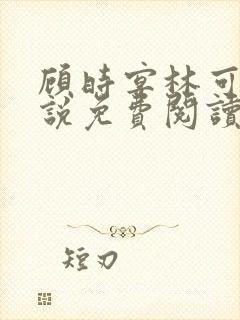 顾時宴林可
説免費閱讀
短刃